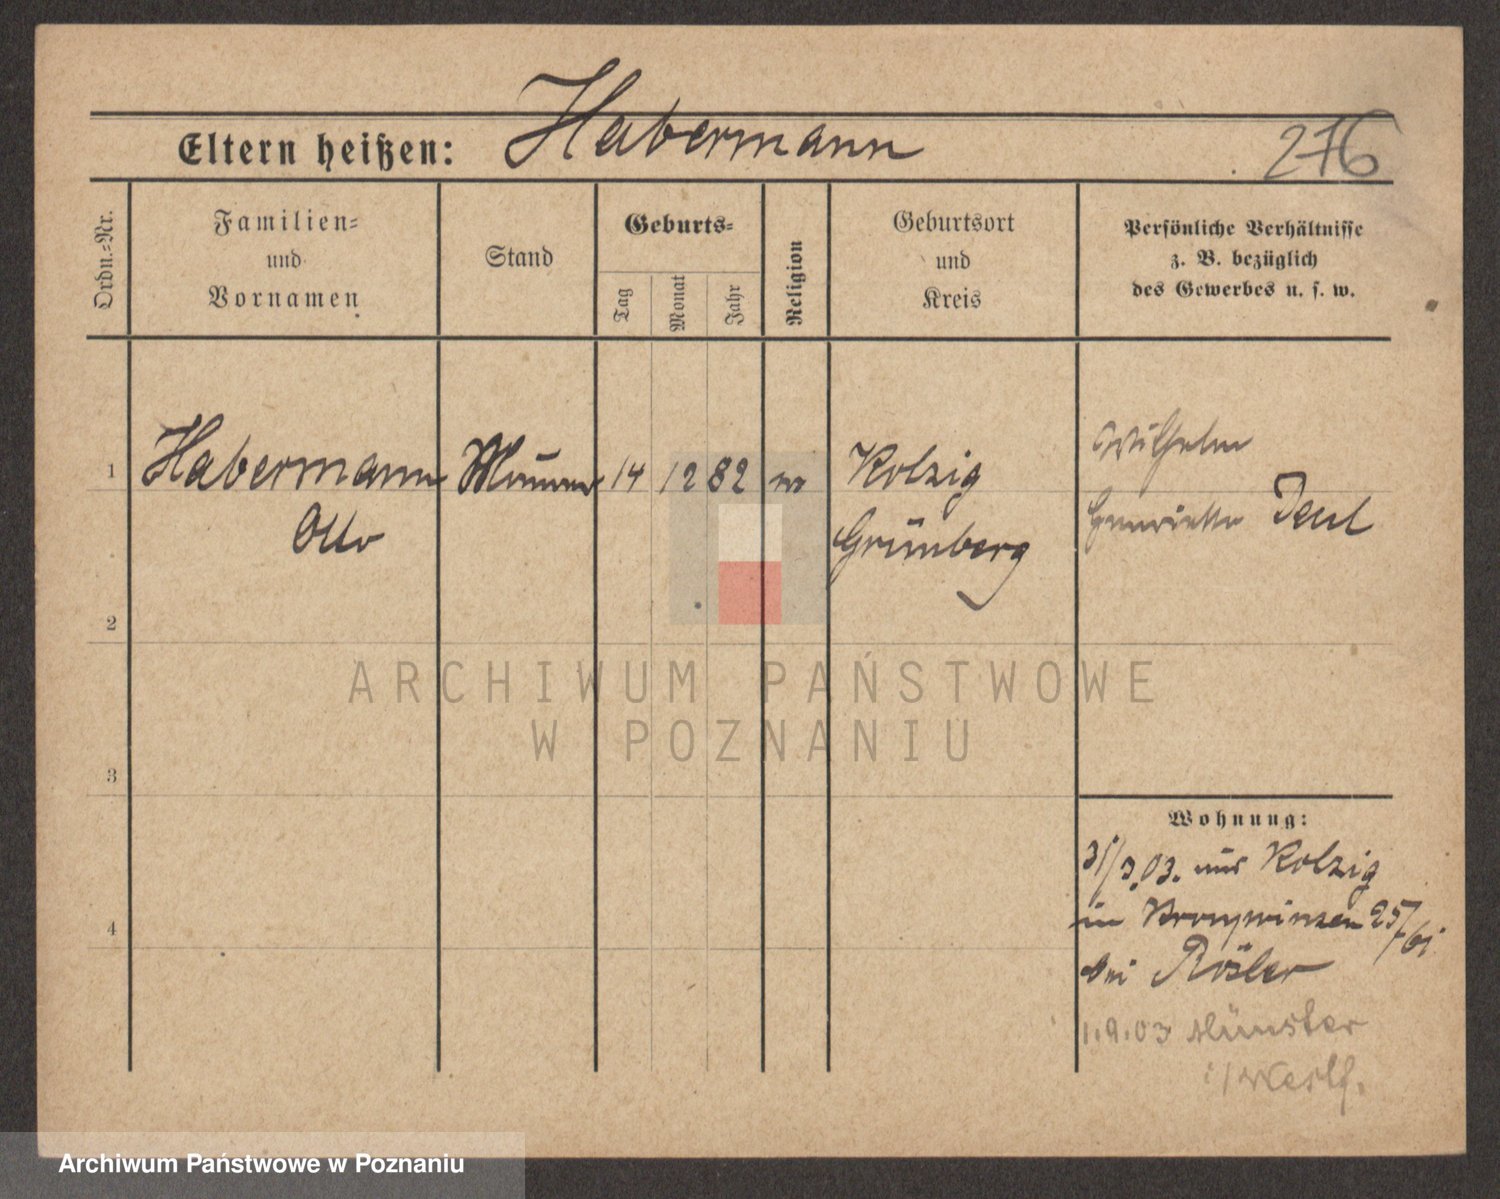 Eltern heißen: Habermann
276
Ordn.-Nr.
Familien-
und
Vornamen
Stand
Geburts-
Tag
Monat
Jahr
Religion
Geburtsort
und
Kreis
Persönliche Verhältnisse
z. B. bezüglich
des Gewerbes u. s. w.
1
Habermann
Otto
Maurer
14
12
82
Kolzig
Grünberg
Wilhelm
Henriette
2
3
4
ARCHIWUM PAŃSTWOWE
W POZNANIU
Wohnung:
31/3.03. aus Kolzig
in Kronprinzen 25/61
bei Rösler
1.9.03 Münster
i/Westf.
Archiwum Państwowe w Poznaniu